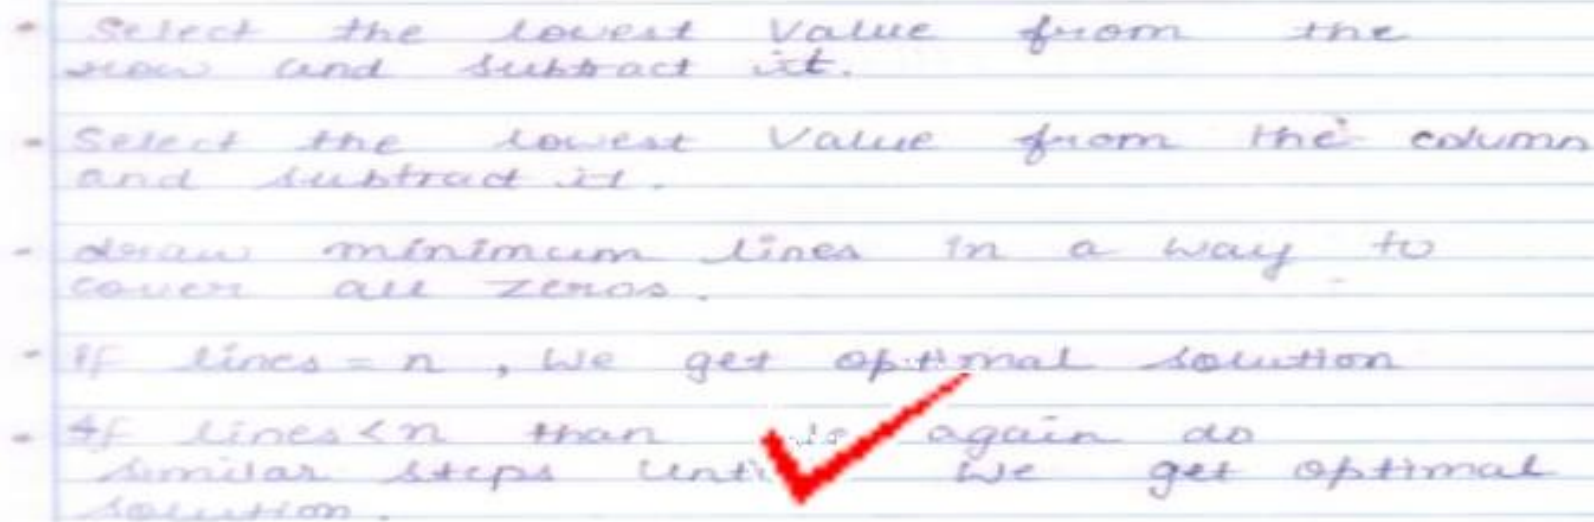 - Select the lowest Value from the
row and subtract it.
- Select the lowest Value from the column
and subtract it.
- draw minimum lines in a way to
cover all zeros.
- if lines = n, We get optimal solution
- If lines < n than again do
similar steps We get optimal
solution.